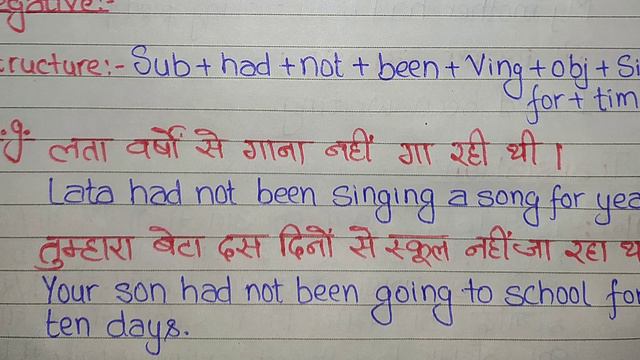 egative:-
ructure:- Sub + had + not + been + Ving + obj + Si
for + tim
.g. लता वर्षों से गाना नहीं गा रही थी ।
Lata had not been singing a song for yea
तुम्हारा बेटा दस दिनों से स्कूल नहीं जा रहा थ
Your son had not been going to school for
ten days.